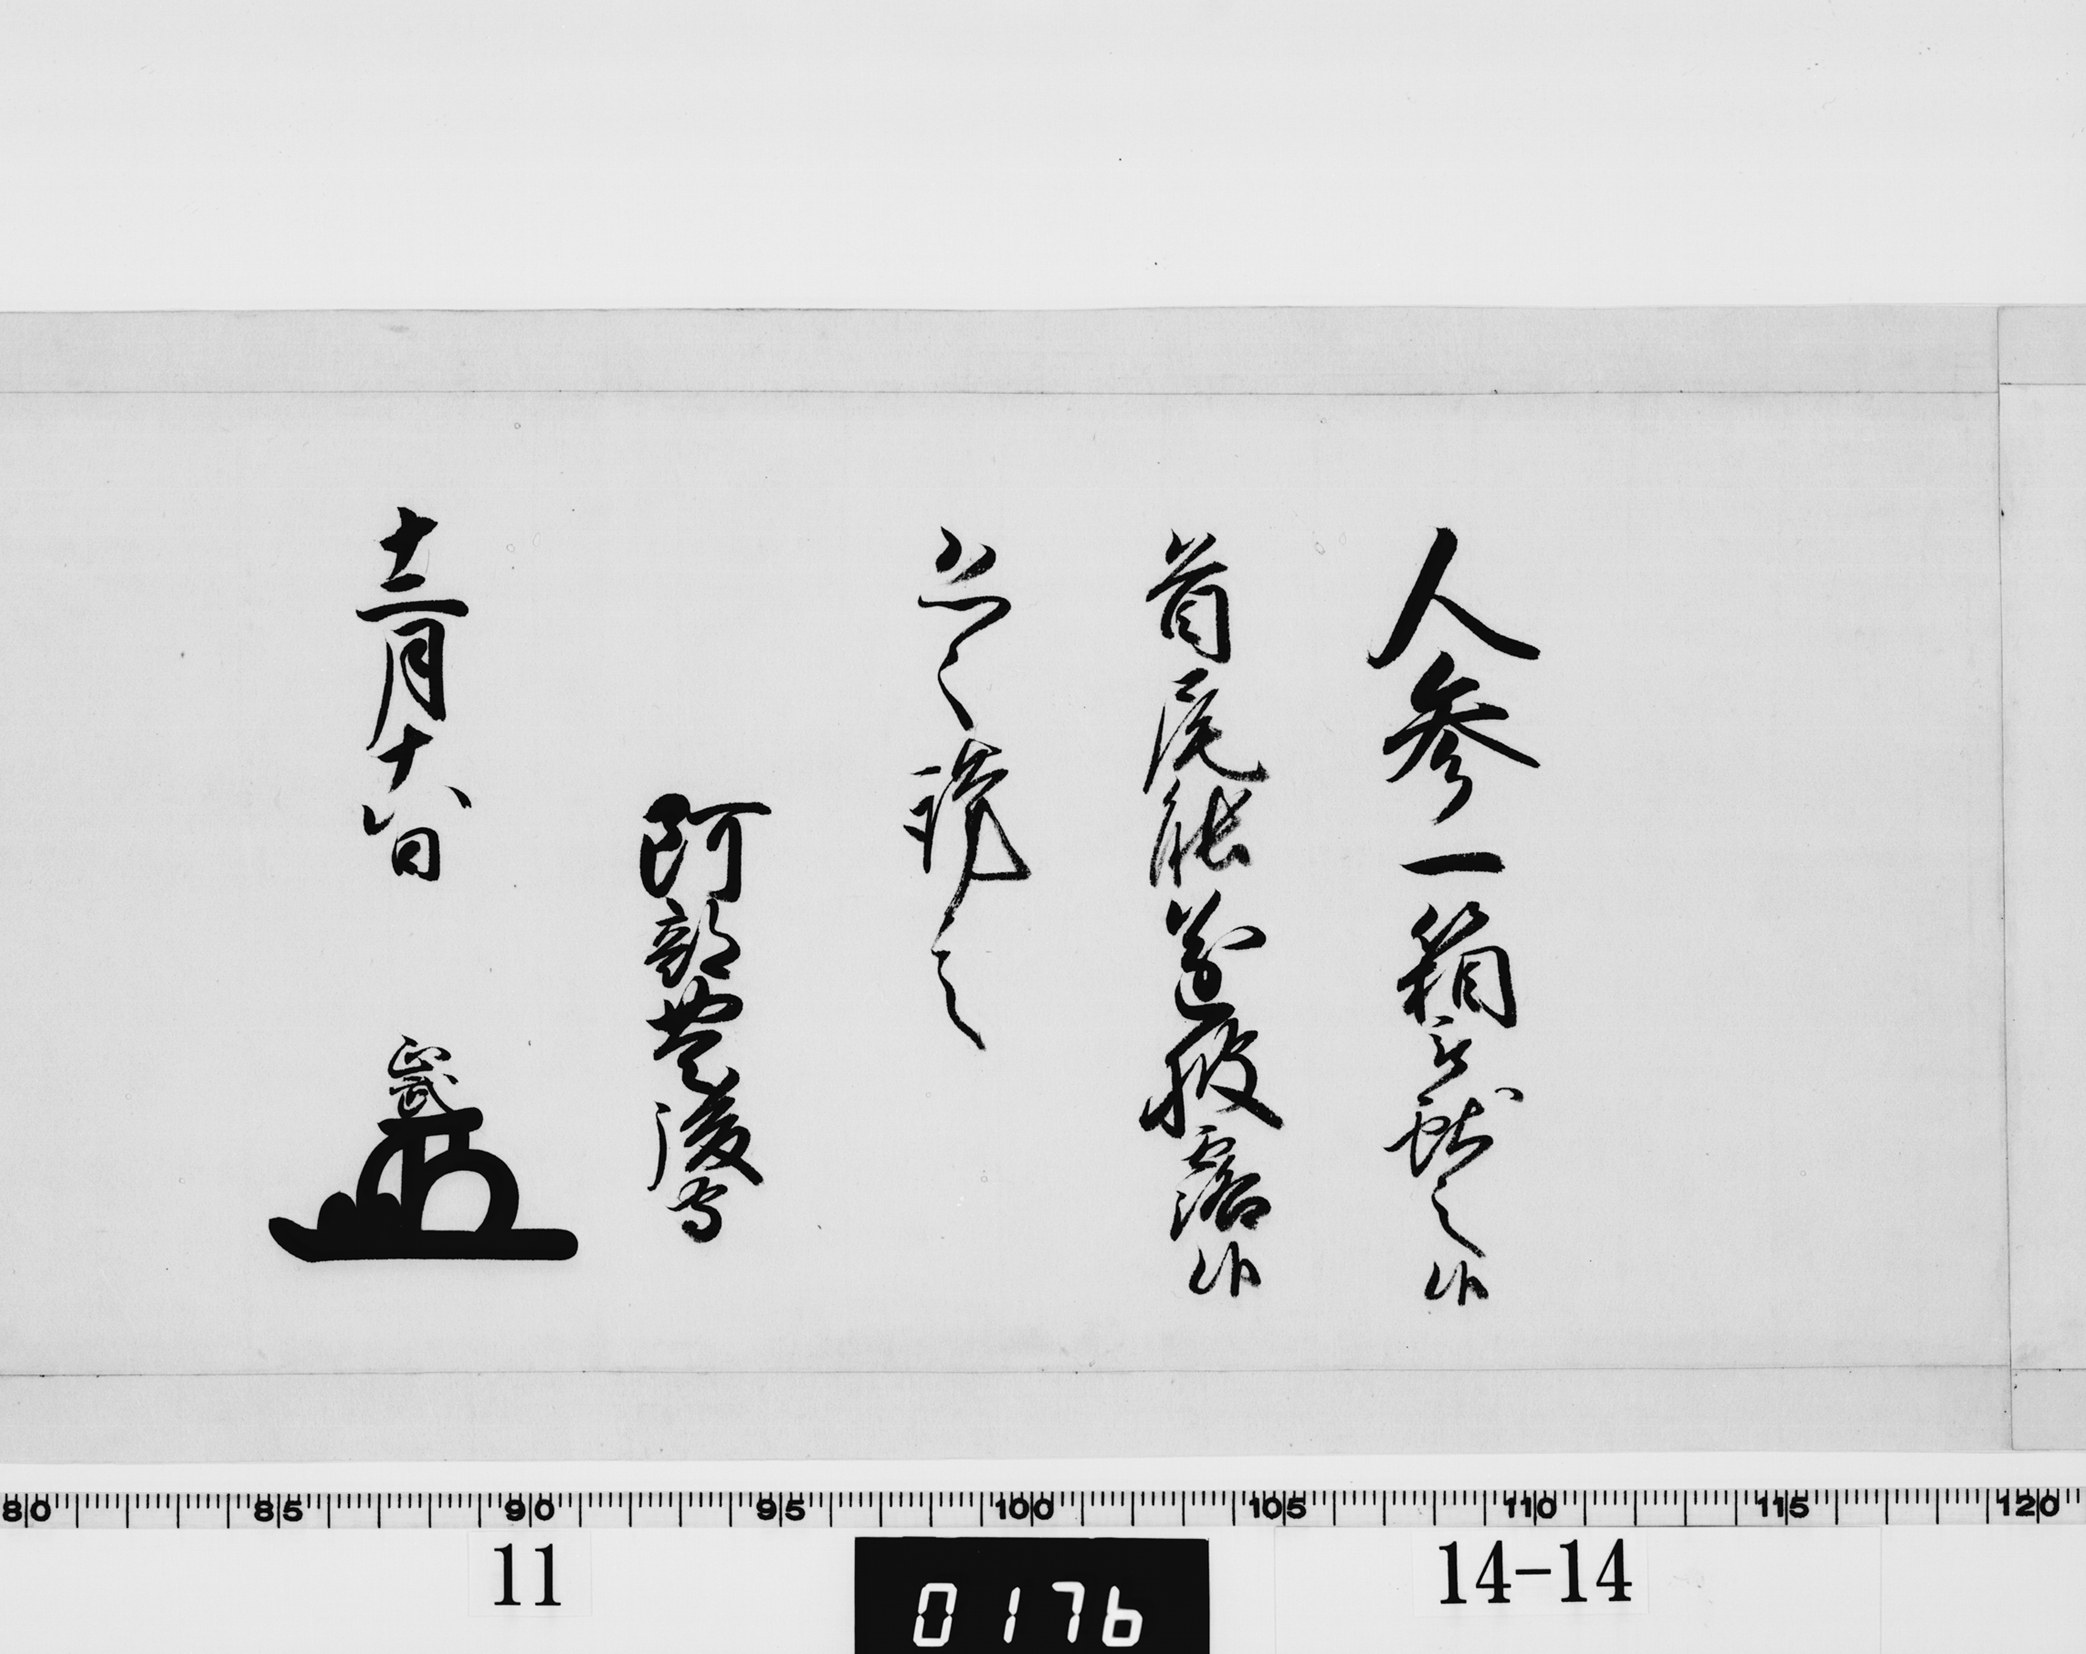 人参一箱被献之候
首尾能遂披露候
恐々謹言
阿部豊後守
十二月十八日
正武
80 85 90 95 100 105 110 115 120
11
0176
14-14